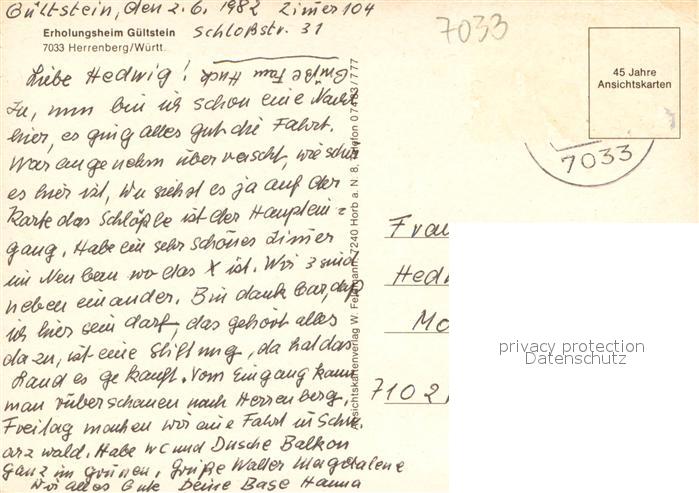 Gültstein, den 2.6.1982 Zimer 104
Schloßstr. 31
Erholungsheim Gültstein
7033 Herrenberg/Württ.
7033
45 Jahre
Ansichtskarten
7033
Liebe Hedwig!
Grüße Fam Huck
nun bin ich schon eine Nacht
hier, es ging alles gut die Fahrt.
War angenehm überrascht, wie schön
es hier ist, Du siehst es ja auf der
Karte das Schlößle ist der Hauptein=
gang. Habe ein sehr schönes Zimer
im Neubau wo das X ist. Wir 3 sind
neben einander. Bin dankbar, daß
ich hier sein darf, das gehört alles
dazu, ist eine Stiftung, da hat das
Land es gekauft. Vom Eingang kann
man rüberschauen nach Herrenberg.
Freitag machen wir eine Fahrt in Schw.
arzwald. Habe WC und Dusche Balkon
Ganz im grünen. Grüße Walter Magdalene
Dir alles Gute Deine Base Hanna
Ansichtskartenverlag W. 7240 Horb a. N. 8, Telefon 07483/777
Frau
Hed
Mo
7102
privacy protection
Datenschutz